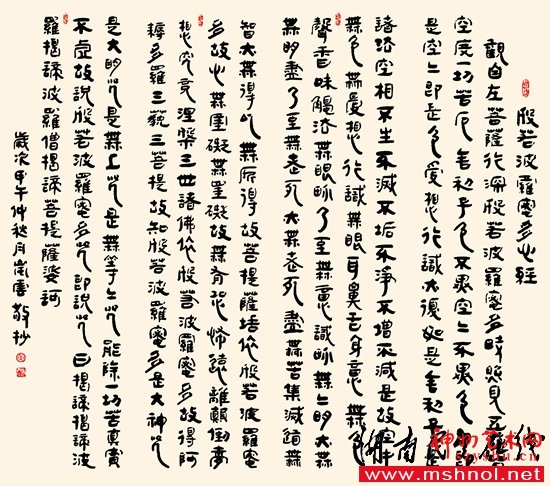 般若波羅蜜多心經
觀自在菩薩行深般若波羅蜜多時照見五
空度一切苦厄舍利子色不異空空不異色
是空空即是色受想行識亦復如是舍利子是
諸法空相不生不滅不垢不淨不增不減是故空
無色無受想行識無眼耳鼻舌身意無色
聲香味觸法無眼界乃至無意識界無無明亦無
無明盡乃至無老死亦無老死盡無苦集滅道無
智亦無得以無所得故菩提薩埵依般若波羅蜜
多故心無罣礙無罣礙故無有恐怖遠離顛倒夢
想究竟涅槃三世諸佛依般若波羅蜜多故得阿
耨多羅三藐三菩提故知般若波羅蜜多是大神咒
是大明咒是無上咒是無等等咒能除一切苦真實
不虛故說般若波羅蜜多咒即說咒曰揭諦揭諦波
羅揭諦波羅僧揭諦菩提薩婆訶
歲次甲午仲秋月嵐雲敬抄
www.mshnol.net